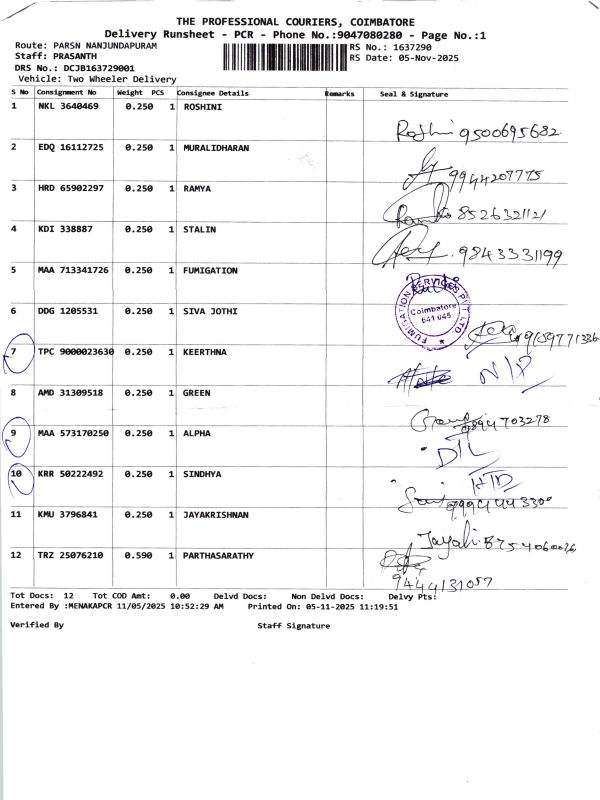 THE PROFESSIONAL COURIERS, COIMBATORE
Delivery Runsheet - PCR - Phone No.:9047080280 - Page No.:1
Route: PARSN NANJUNDAPURAM
RS No.: 1637290
Staff: PRASANTH
RS Date: 05-Nov-2025
DRS No.: DCJB163729001
Vehicle: Two Wheeler Delivery
S No Consignment No Weight PCS Consignee Details Remarks Seal & Signature
1 NKL 3640469 0.250 1 ROSHINI
Roshni 9500695682
2 EDQ 16112725 0.250 1 MURALIDHARAN
9944207775
3 HRD 65902297 0.250 1 RAMYA
8526321121
4 KDI 338887 0.250 1 STALIN
9843331199
5 MAA 713341726 0.250 1 FUMIGATION
FUMIGATION SERVICES PVT LTD.
Coimbatore
641 045
6 DDG 1205531 0.250 1 SIVA JOTHI
7 TPC 9000023630 0.250 1 KEERTHNA
N/P
8 AMD 31309518 0.250 1 GREEN
9894703278
9 MAA 573170250 0.250 1 ALPHA
DTL
10 KRR 50222492 0.250 1 SINDHYA
HTD
11 KMU 3796841 0.250 1 JAYAKRISHNAN
8754060076
12 TRZ 25076210 0.590 1 PARTHASARATHY
9444131057
Tot Docs: 12 Tot COD Amt: 0.00 Delvd Docs: Non Delvd Docs: Delvy Pts:
Entered By :MENAKAPCR 11/05/2025 10:52:29 AM Printed On: 05-11-2025 11:19:51
Verified By Staff Signature